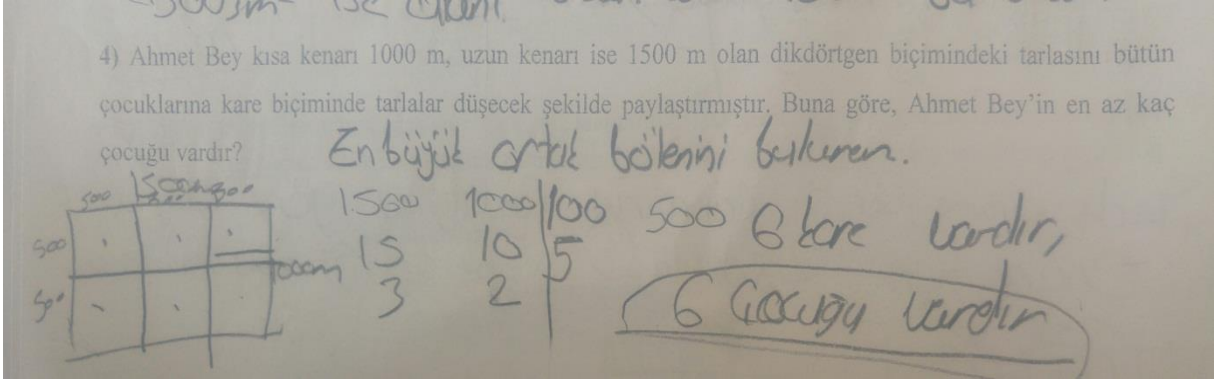 4) Ahmet Bey kısa kenarı 1000 m, uzun kenarı ise 1500 m olan dikdörtgen biçimindeki tarlasını bütün
çocuklarına kare biçiminde tarlalar düşecek şekilde paylaştırmıştır. Buna göre, Ahmet Bey'in en az kaç
çocuğu vardır?
En büyük ortak bölenini bulurum.
500
500
500
1500 1000 100 500 6 kare vardır,
15 10 5
3 2
6 Çocuğu vardır